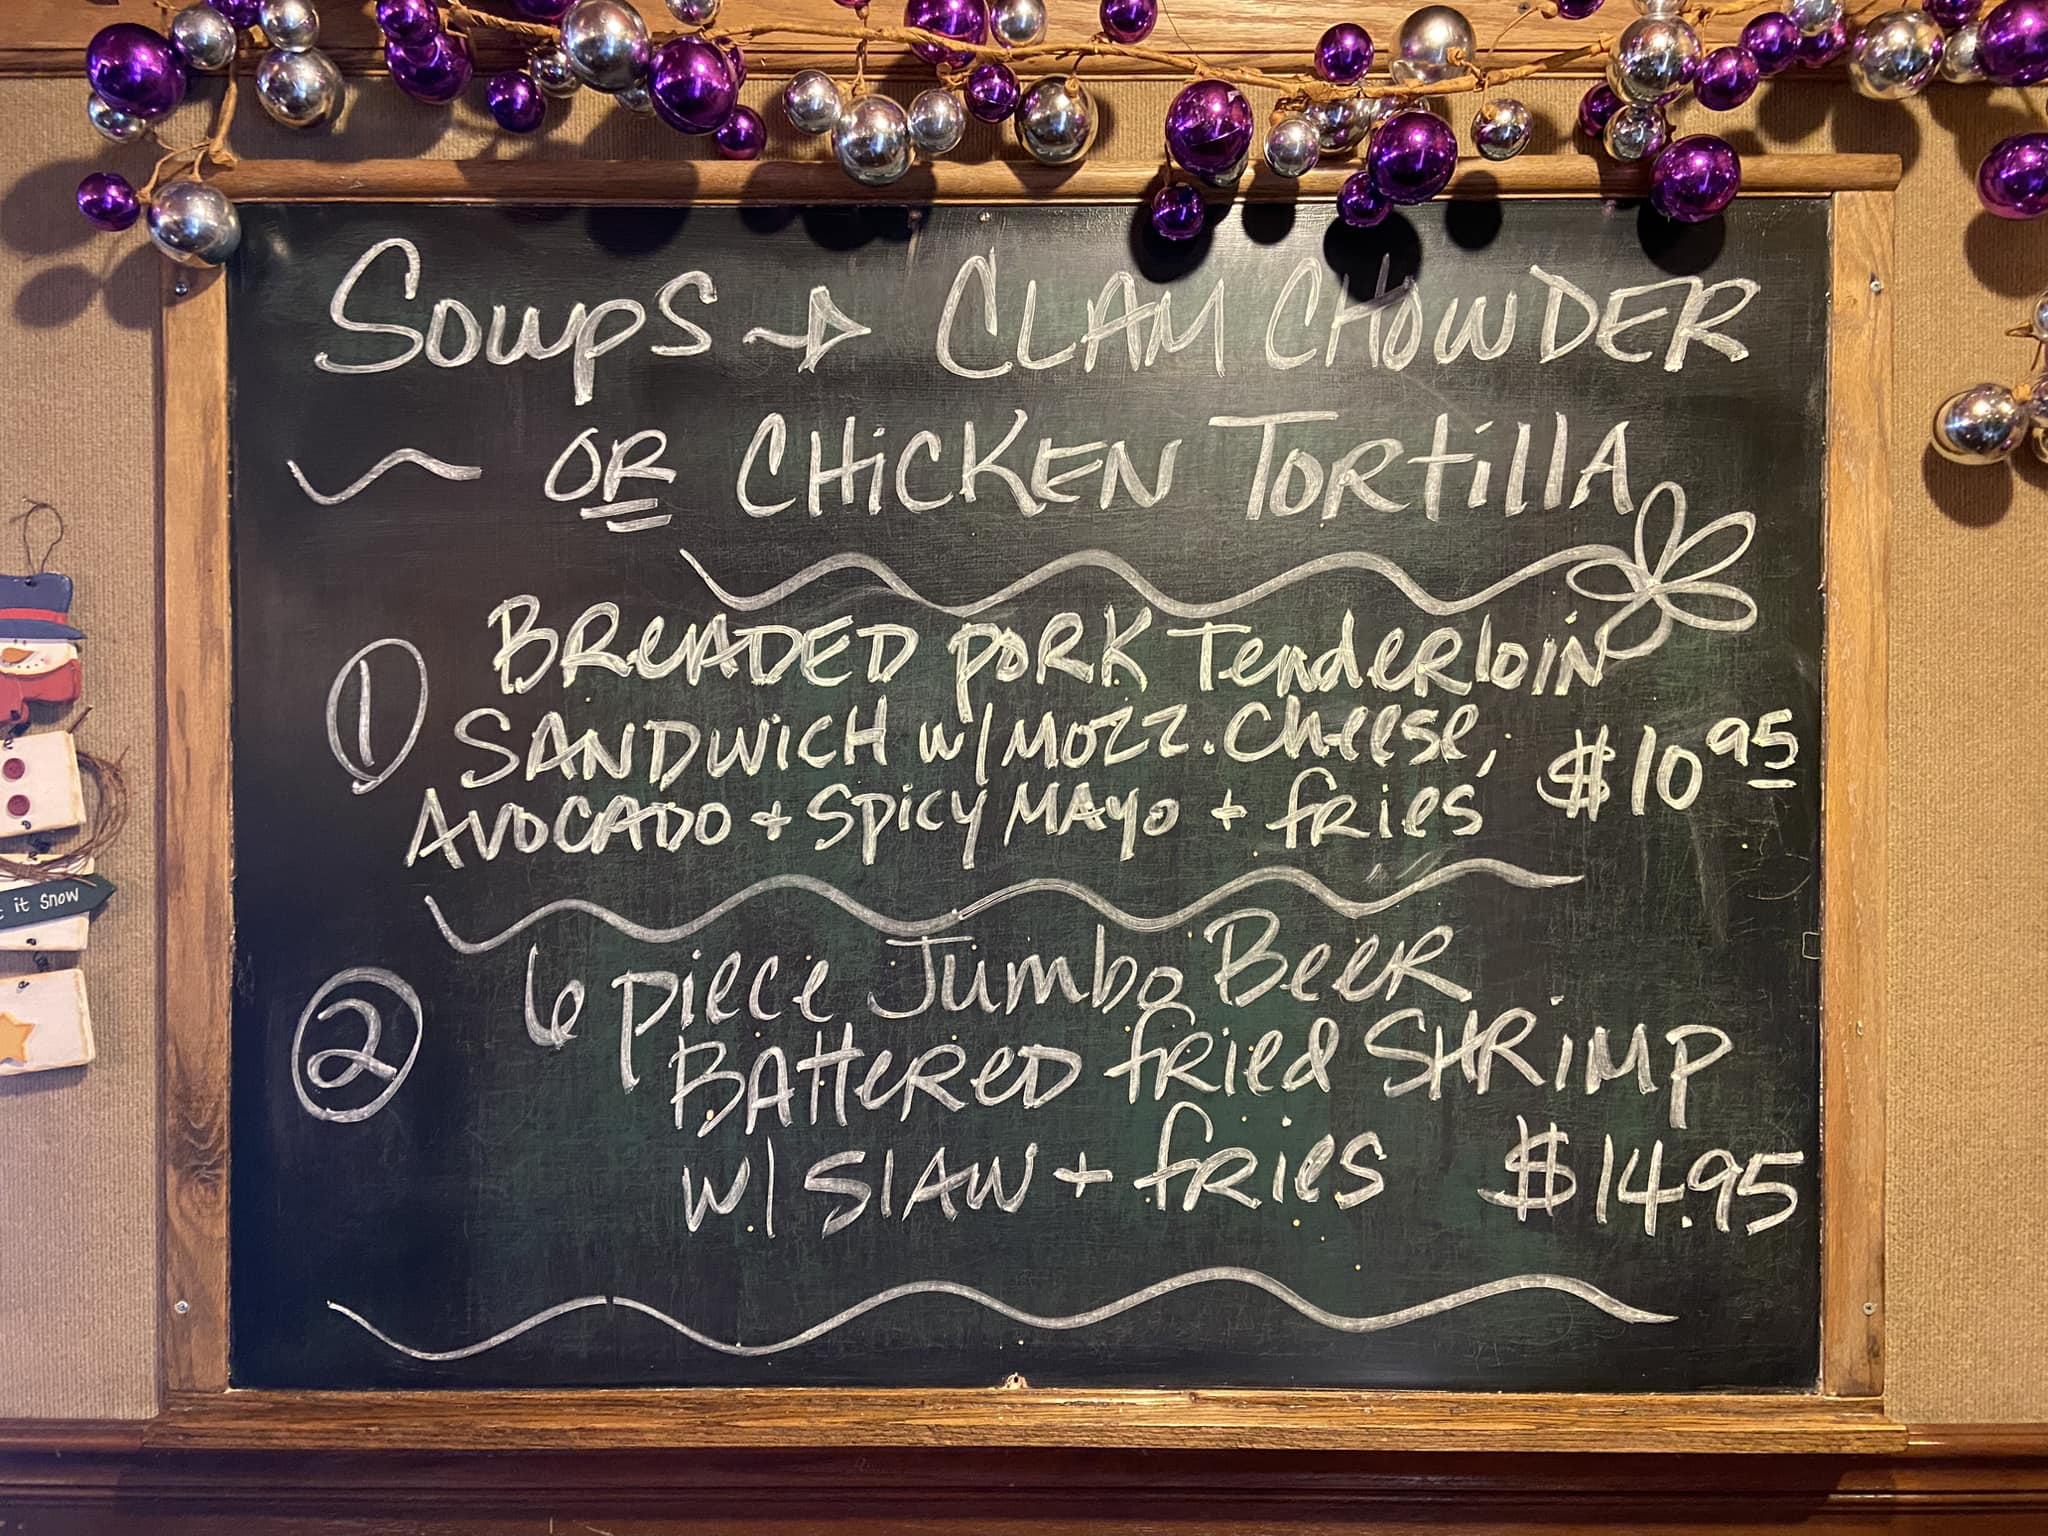 Soups → CLAM CHOWDER
~ OR CHiCKEN TORtillA
1 BReADED PORK Tenderloin
SANDWiCH w/ MOZZ. Cheese,
AVOCADO + SPiCY MAYO + fRies $10.95
2 6 piece Jumbo BeeR
BAtteReD fRied SHRiMP
w/ SlAW + fRies $14.95
it snow